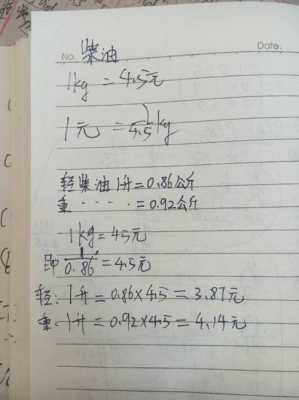 No. 柴油 Date.
1kg = 4.5元
1元 = 1/4.5 kg
轻柴油 1升 = 0.86公斤
重 · · · · · = 0.92公斤
1kg = 4.5元
即 1/0.86 = 4.5元
轻: 1升 = 0.86×4.5 = 3.87元
重: 1升 = 0.92×4.5 = 4.14元